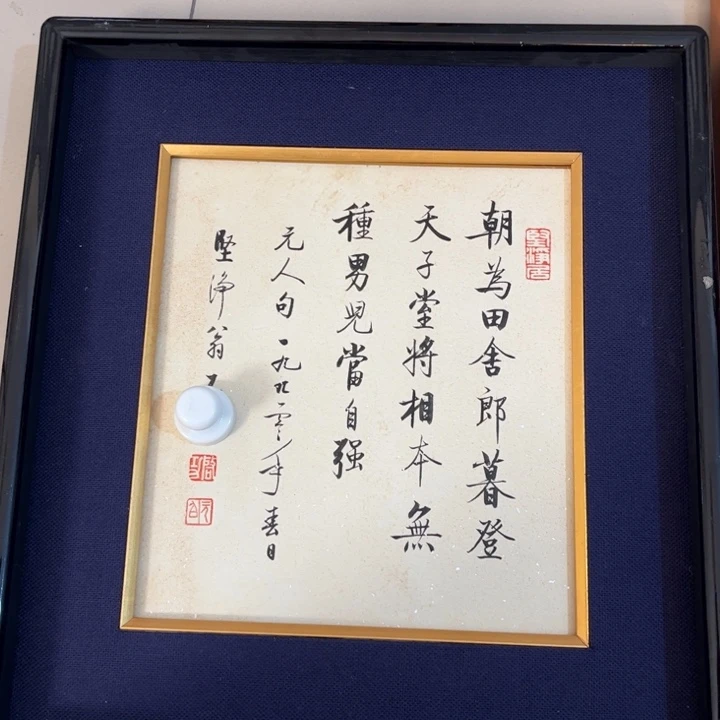 朝為田舍郎暮登
天子堂將相本無
種男兒當自强
元人句一九九零年春日
堅淨翁